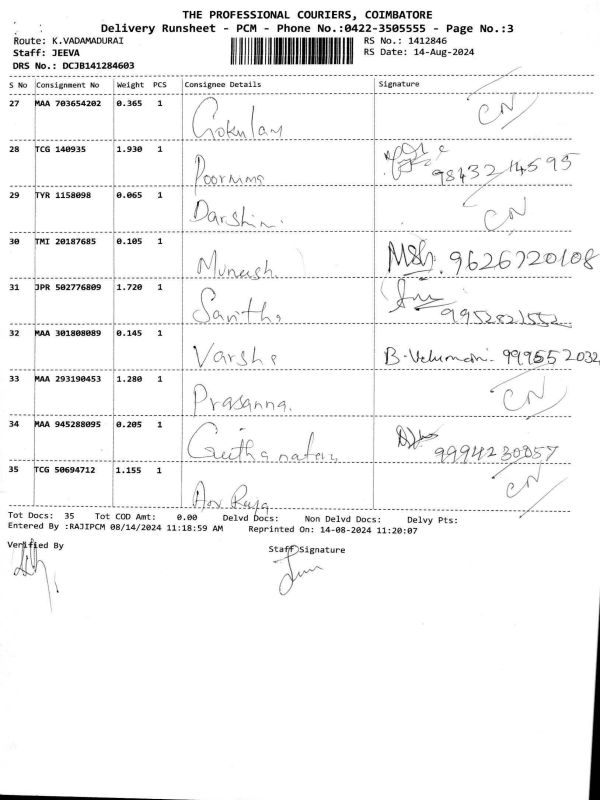 THE PROFESSIONAL COURIERS, COIMBATORE
Delivery Runsheet - PCM - Phone No.:0422-3505555 - Page No.:3
Route: K.VADAMADURAI RS No.: 1412846
Staff: JEEVA RS Date: 14-Aug-2024
DRS No.: DCJB141284603
S No Consignment No Weight PCS Consignee Details Signature
27 MAA 703654202 0.365 1 Gokulam CN
28 TCG 140935 1.930 1 Poornima 9843214595
29 TYR 1158098 0.065 1 Darshini. CN
30 TMI 20187685 0.105 1 Muneesh 9626720108
31 JPR 502776809 1.720 1 Savitha 9952821552
32 MAA 301808089 0.145 1 Varsha B. Velumani. 9995552032
33 MAA 293190453 1.280 1 Prasanna. CN
34 MAA 945288095 0.205 1 9994230057
35 TCG 50694712 1.155 1 Raja CN
Tot Docs: 35 Tot COD Amt: 0.00 Delvd Docs: Non Delvd Docs: Delvy Pts:
Entered By :RAJIPCM 08/14/2024 11:18:59 AM Reprinted On: 14-08-2024 11:20:07
Verified By Staff Signature